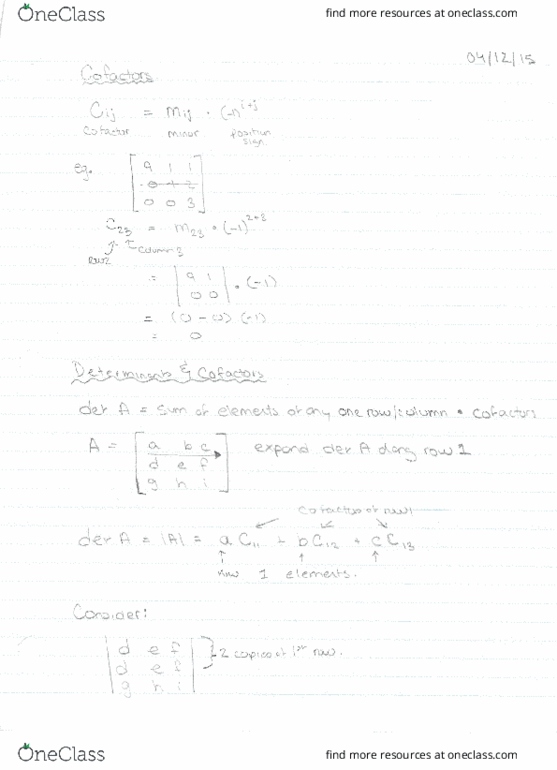 OneClass find more resources at oneclass.com
04/12/15
Cofactors
Cij = mij · (-1)^i+j
cofactor minor position sign
eg. [ 9 1 1
0 1 2
0 0 3 ]
C23 = m23 · (-1)^2+3
row 2 column 3
= | 9 1
0 0 | · (-1)
= (0 - 0) (-1)
= 0
Determinants & Cofactors
det A = sum of elements of any one row/column · cofactors
A = [ a b c
d e f
g h i ] expand det A along row 1
cofactors of row 1
det A = |A| = a C11 + b C12 + c C13
row 1 elements.
Consider:
| d e f
d e f } 2 copies of 1st row.
g h i |
OneClass find more resources at oneclass.com